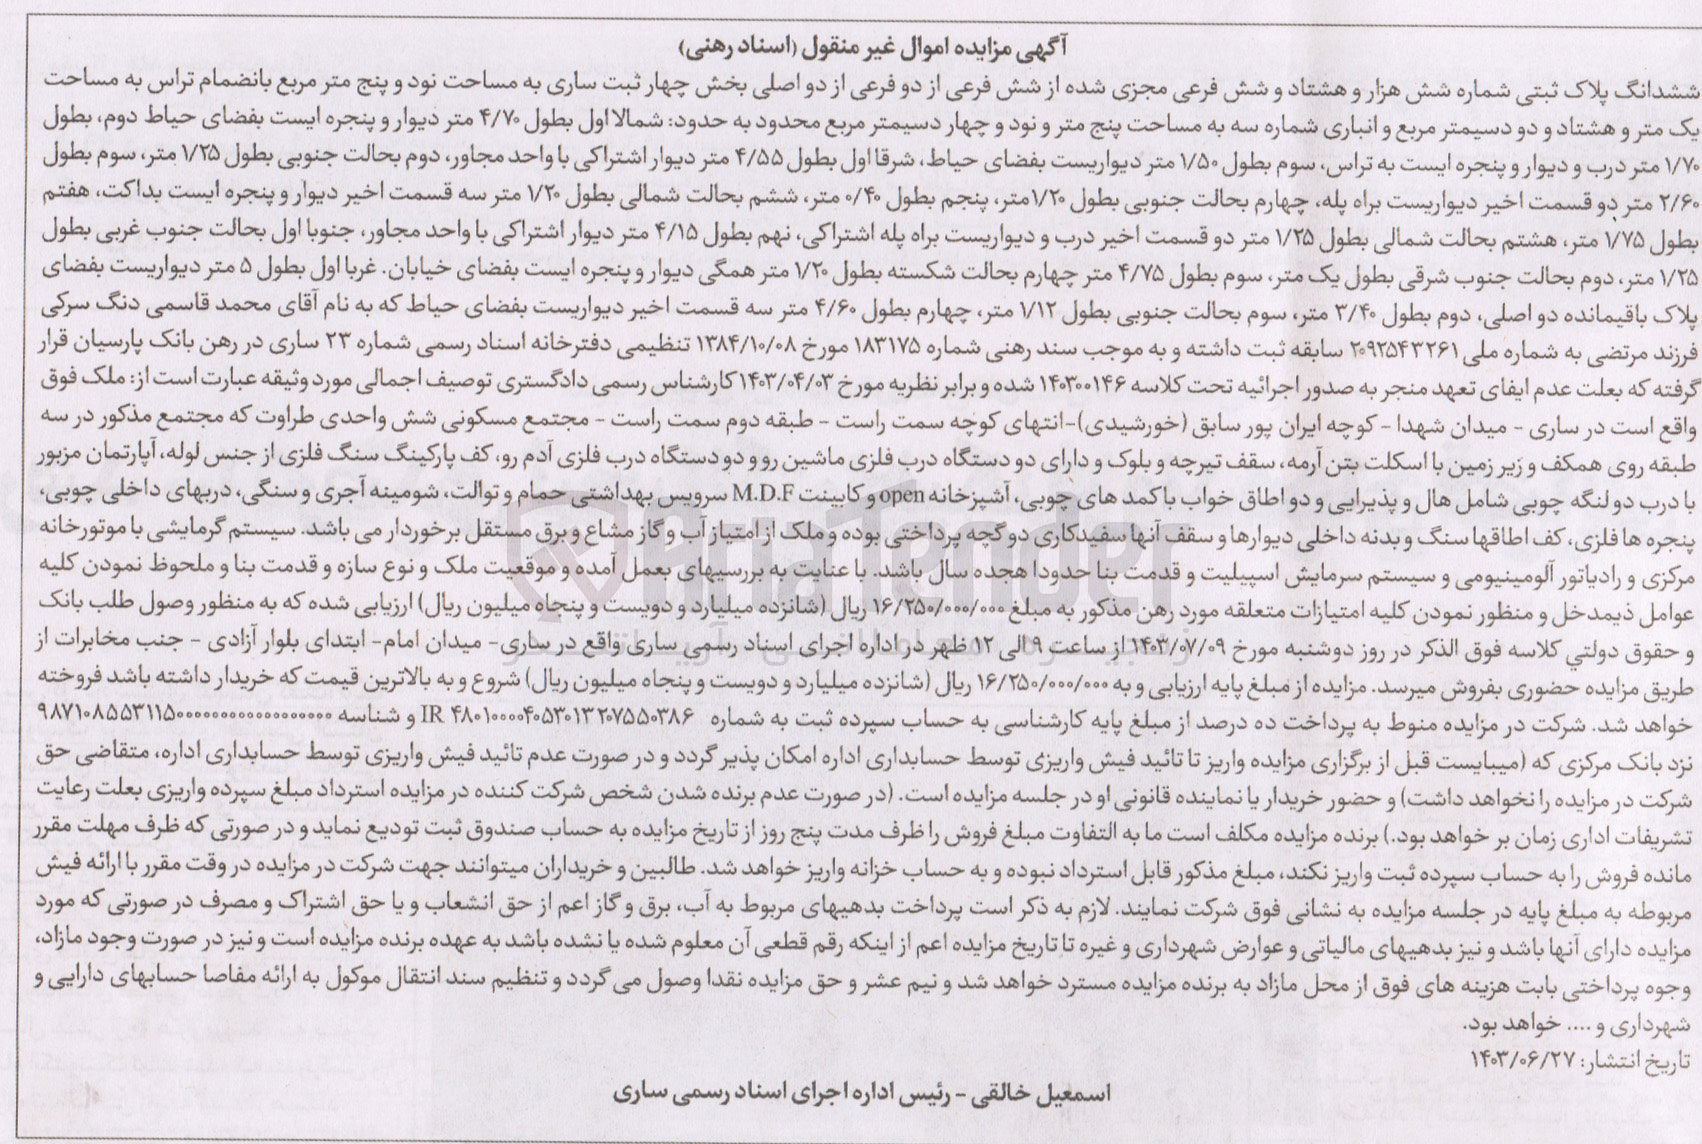 آگهی مزایده اموال غیر منقول (اسناد رهنی)
ششدانگ پلاک ثبتی شماره شش هزار و هشتاد و شش فرعی مجزی شده از شش فرعی از دو فرعی از دو اصلی بخش چهار ثبت ساری به مساحت نود و پنج متر مربع بانضمام تراس به مساحت
یک متر و هشتاد و دو دسیمتر مربع و انباری شماره سه به مساحت پنج متر و نود و چهار دسیمتر مربع محدود به حدود: شمالا اول بطول ۴/۷۰ متر دیوار و پنجره ایست بفضای حیاط دوم، بطول
۱/۷۰ متر درب و دیوار و پنجره ایست به تراس، سوم بطول ۱/۵۰ متر دیواریست بفضای حیاط، شرقا اول بطول ۴/۵۵ متر دیوار اشتراکی با واحد مجاور، دوم بحالت جنوبی بطول ۱/۲۵ متر، سوم بطول
۲/۶۰ متر دو قسمت اخیر دیواریست براه پله، چهارم بحالت جنوبی بطول ۱/۲۰متر، پنجم بطول ۰/۴۰ متر، ششم بحالت شمالی بطول ۱/۲۰ متر سه قسمت اخیر دیوار و پنجره ایست بداکت، هفتم
بطول ۱/۷۵ متر، هشتم بحالت شمالی بطول ۱/۲۵ متر دو قسمت اخیر درب و دیواریست براه پله اشتراکی، نهم بطول ۴/۱۵ متر دیوار اشتراکی با واحد مجاور، جنوبا اول بحالت جنوب غربی بطول
۱/۲۵ متر، دوم بحالت جنوب شرقی بطول یک متر، سوم بطول ۴/۷۵ متر چهارم بحالت شکسته بطول ۱/۲۰ متر همگی دیوار و پنجره ایست بفضای خیابان. غربا اول بطول ۵ متر دیواریست بفضای
پلاک باقیمانده دو اصلی، دوم بطول ۳/۴۰ متر، سوم بحالت جنوبی بطول ۱/۱۲ متر، چهارم بطول ۴/۶۰ متر سه قسمت اخیر دیواریست بفضای حیاط که به نام آقای محمد قاسمی دنگ سرکی
فرزند مرتضی به شماره ملی ۲۰۹۲۵۴۳۲۶۱ سابقه ثبت داشته و به موجب سند رهنی شماره ۱۸۳۱۷۵ مورخ ۱۳۸۴/۱۰/۰۸ تنظیمی دفترخانه اسناد رسمی شماره ۲۳ ساری در رهن بانک پارسیان قرار
گرفته که بعلت عدم ایفای تعهد منجر به صدور اجرائیه تحت کلاسه ۱۴۰۳۰۰۱۴۶ شده و برابر نظریه مورخ ۱۴۰۳/۰۴/۰۳ کارشناس رسمی دادگستری توصیف اجمالی مورد وثیقه عبارت است از: ملک فوق
واقع است در ساری - میدان شهدا - کوچه ایران پور سابق (خورشیدی)-انتهای کوچه سمت راست - طبقه دوم سمت راست - مجتمع مسکونی شش واحدی طراوت که مجتمع مذکور در سه
طبقه روی همکف و زیر زمین با اسکلت بتن آرمه، سقف تیرچه و بلوک و دارای دو دستگاه درب فلزی ماشین رو و دو دستگاه درب فلزی آدم رو، کف پارکینگ سنگ فلزی از جنس لوله، آپارتمان مزبور
با درب دو لنگه چوبی شامل هال و پذیرایی و دو اطاق خواب با کمد های چوبی، آشپزخانه open و کابینت M.D.F سرویس بهداشتی حمام و توالت، شومینه آجری و سنگی، دربهای داخلی چوبی،
پنجره ها فلزی، کف اطاقها سنگ و بدنه داخلی دیوارها و سقف آنها سفیدکاری دو گچه پرداختی بوده و ملک از امتیاز آب و گاز مشاع و برق مستقل برخوردار می باشد. سیستم گرمایشی با موتورخانه
مرکزی و رادیاتور آلومینیومی و سیستم سرمایش اسپیلیت و قدمت بنا حدودا هجده سال باشد. با عنایت به بررسیهای بعمل آمده و موقعیت ملک و نوع سازه و قدمت بنا و ملحوظ نمودن کلیه
عوامل ذیمدخل و منظور نمودن کلیه امتیازات متعلقه مورد رهن مذکور به مبلغ ۱۶/۲۵۰/۰۰۰/۰۰۰ ریال (شانزده میلیارد و دویست و پنجاه میلیون ریال) ارزیابی شده که به منظور وصول طلب بانک
و حقوق دولتي کلاسه فوق الذکر در روز دوشنبه مورخ ۱۴۰۳/۰۷/۰۹ از ساعت ۹ الی ۱۲ ظهر در اداره اجرای اسناد رسمی ساری واقع در ساری- میدان امام- ابتدای بلوار آزادی - جنب مخابرات از
طریق مزایده حضوری بفروش میرسد. مزایده از مبلغ پایه ارزیابی و به ۱۶/۲۵۰/۰۰۰/۰۰۰ ریال (شانزده میلیارد و دویست و پنجاه میلیون ریال) شروع و به بالاترین قیمت که خریدار داشته باشد فروخته
خواهد شد. شرکت در مزایده منوط به پرداخت ده درصد از مبلغ پایه کارشناسی به حساب سپرده ثبت به شماره IR ۴۸۰۱۰۰۰۰۴۰۵۳۰۱۳۲۰۷۵۵۰۳۸۶ و شناسه
نزد بانک مرکزی که (میبایست قبل از برگزاری مزایده واریز تا تائید فیش واریزی توسط حسابداری اداره امکان پذیر گردد و در صورت عدم تائید فیش واریزی توسط حسابداری اداره، متقاضی حق
شرکت در مزایده را نخواهد داشت) و حضور خریدار یا نماینده قانونی او در جلسه مزایده است. (در صورت عدم برنده شدن شخص شرکت کننده در مزایده استرداد مبلغ سپرده واریزی بعلت رعایت
تشریفات اداری زمان بر خواهد بود.) برنده مزایده مکلف است ما به التفاوت مبلغ فروش را ظرف مدت پنج روز از تاریخ مزایده به حساب صندوق ثبت تودیع نماید و در صورتی که ظرف مهلت مقرر
مانده فروش را به حساب سپرده ثبت واریز نکند، مبلغ مذکور قابل استرداد نبوده و به حساب خزانه واریز خواهد شد. طالبین و خریداران میتوانند جهت شرکت در مزایده در وقت مقرر با ارائه فیش
مربوطه به مبلغ پایه در جلسه مزایده به نشانی فوق شرکت نمایند. لازم به ذکر است پرداخت بدهیهای مربوط به آب، برق و گاز اعم از حق انشعاب و یا حق اشتراک و مصرف در صورتی که مورد
مزایده دارای آنها باشد و نیز بدهیهای مالیاتی و عوارض شهرداری و غیره تا تاریخ مزایده اعم از اینکه رقم قطعی آن معلوم شده یا نشده باشد به عهده برنده مزایده است و نیز در صورت وجود مازاد،
وجوه پرداختی بابت هزینه های فوق از محل مازاد به برنده مزایده مسترد خواهد شد و نیم عشر و حق مزایده نقدا وصول می گردد و تنظیم سند انتقال موکول به ارائه مفاصا حسابهای دارایی و
شهرداری و .... خواهد بود.
تاریخ انتشار: ۱۴۰۳/۰۶/۲۷
اسمعیل خالقی - رئیس اداره اجرای اسناد رسمی ساری
AriaTender